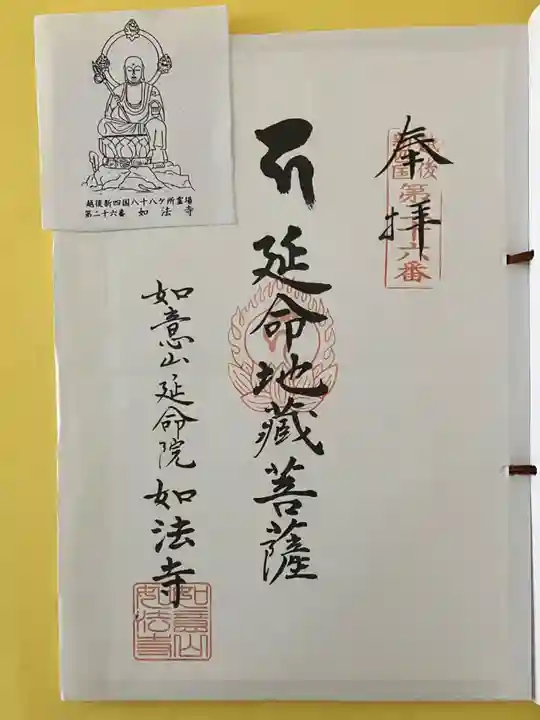 奉拝
越後
新四国
第二十六番
延命地蔵菩薩
如意山延命院如法寺
如意山
如法寺
越後新四国八十八ケ所霊場
第二十六番 如法寺